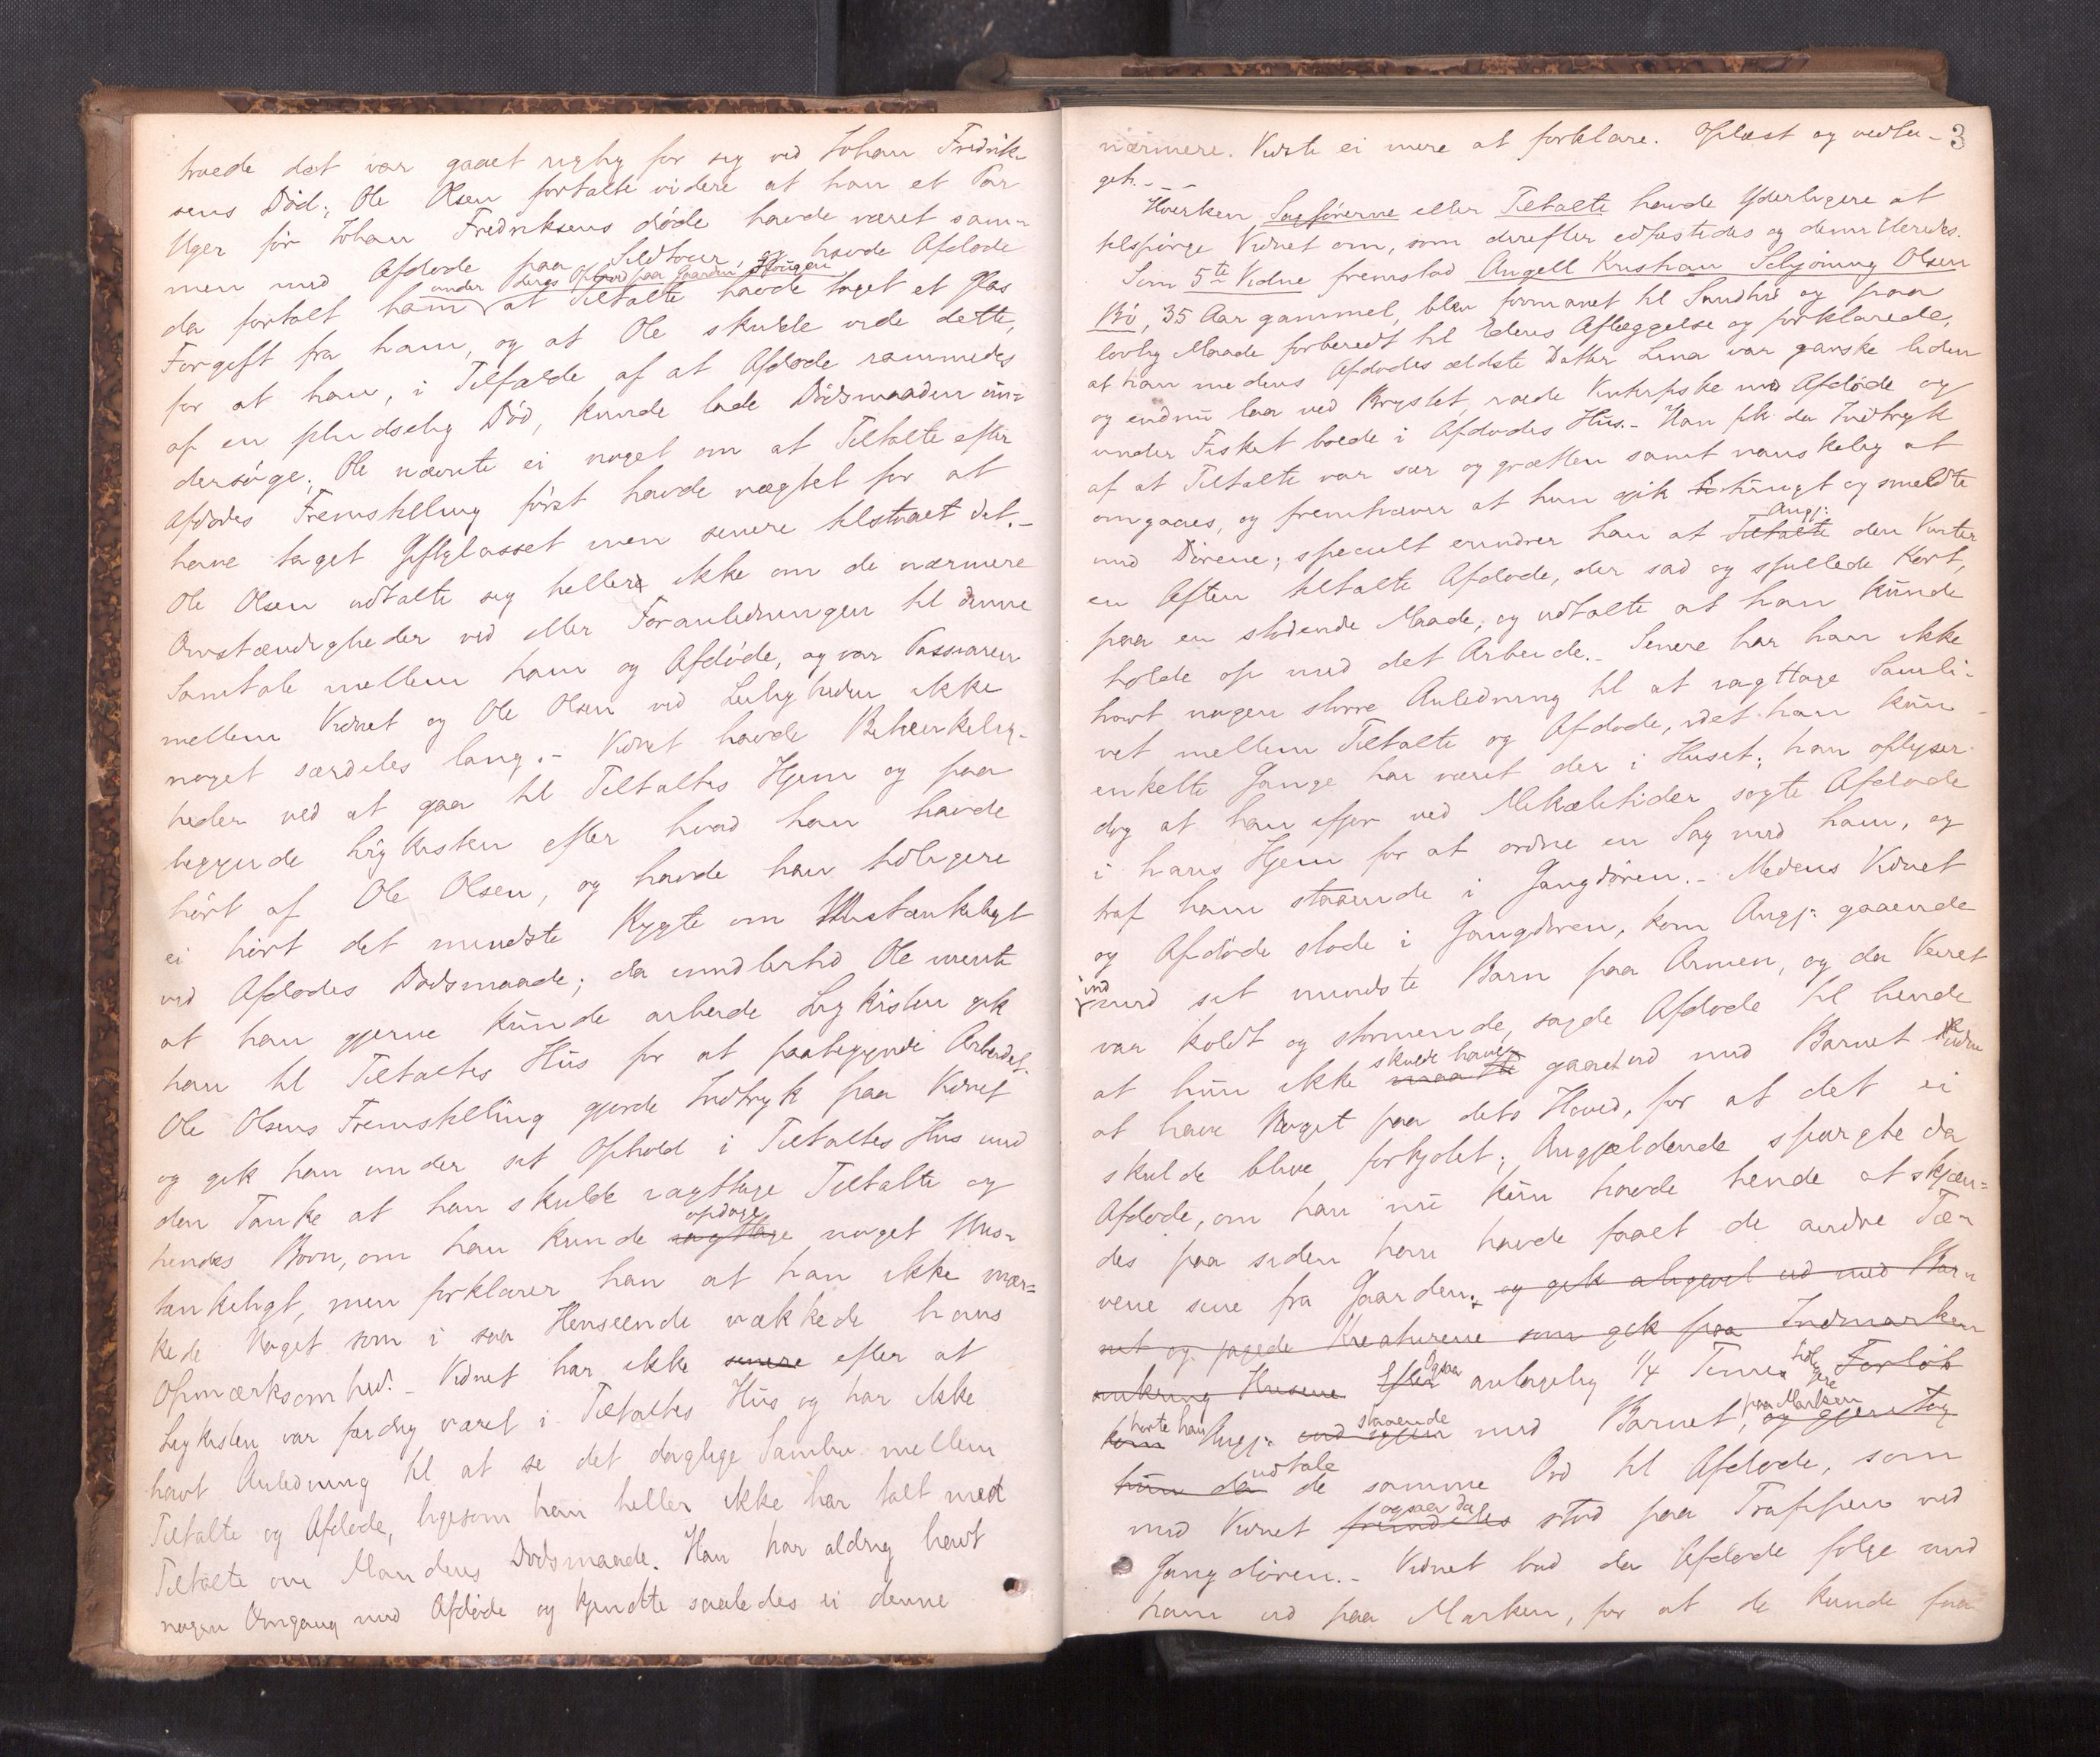 troede det var gaaet rigtig for sig ved Johan Fredrik-
sens Død; Ole Olsen fortalte videre at han et Par
Uger før Johan Fredriksens døde havde været sam-
men med Afdøde paa Sildtour, og havde Afdøde
under deres Ophold paa Gaarden
da fortalt ham at Tiltalte havde taget et Glas
Forgift fra ham, og at Ole skulde vide dette,
for at han, i Tilfælde af at Afdøde rammedes
af en pludselig Død, kunde lade Dødsmaaden un-
dersøge; Ole nævnte ei noget om at Tiltalte efter
Afdødes Fremstilling først havde nægtet for at
have taget Giftglasset men senere tilstaaet det.-
Ole Olsen udtalte sig heller ikke om de nærmere
Omstændigheder ved eller Foranledningen til denne
Samtale mellem ham og Afdøde, og var Passiaren
mellem Vidnet og Ole Olsen ved Leiligheden ikke
noget særdeles lang.- Vidnet havde Betænkelig-
heder ved at gaa til Tiltaltes Hjem og paa
begynde Ligkisten efter hvad han havde
hørt af Ole Olsen, og havde han tidligere
ei hørt det mindste Rygte om Mistænkeligt
ved Afdødes Dødsmaade; da imidlertid Ole mente
at han gjerne kunde arbeide Ligkisten gik
han til Tiltaltes Hus for at paabegynde Arbeidet.
Ole Olsens Fremstilling gjorde Indtryk paa Vidnet
og gik han under sit Ophold i Tiltaltes Hus med
den Tanke at han skulde iagttage Tiltalte og
opdage
hendes Børn, om han kunde iagttage noget Mis-
tænkeligt, men forklarer han at han ikke mær-
kede Noget som i saa Henseende vækkede hans
Opmærksomhed.- Vidnet har ikke senere efter at
Ligkisten var færdig været i Tiltaltes Hus og har ikke
havt Anledning til at se det daglige Samliv mellem
Tiltalte og Afdøde, ligesom han heller ikke har talt med
Tiltalte om Mandens Dødsmaade. Han har aldrig havt
nogen Omgang med Afdøde og kjendte saaledes ei denne
3
nærmere. Vidste ei mere at forklare. Oplæst og vedta-
get.- - -
Hverken Sagførerne eller Tiltalte havde Yderligere at
tilspørge Vidnet om, som derefter edfæstedes og demitteredes.
Som 5te Vidne fremstod Angell Kristian Schjøning Olsen
Bø, 35 Aar gammel, blev formanet til Sandhed og paa
lovlig Maade forberedt til Edens Aflæggelse og forklarede,
at han medens Afdødes ældste Datter Lina var ganske liden
og endnu laa ved Brystet, roede Vinterfiske med Afdøde og
under Fisket boede i Afdødes Hus.- Han fik da Indtryk
af at Tiltalte var sær og grætten samt vanskelig at
omgaaes, og fremhæver at hun gik og smeldte
Angj:
med Dørene; specielt erindrer han at Tiltalte den Vinter
en Aften tiltalte Afdøde, der sad og spillede Kort,
paa en stødende Maade, og udtalte at han kunde
holde op med det Arbeide.- Senere har han ikke
havt nogen større Anledning til at iagttage Samli-
vet mellem Tiltalte og Afdøde, idet han kun
enkelte Gange har været der i Huset; han oplyser
dog at han ifjor ved Mikælitider søgte Afdøde
i hans Hjem for at ordne en Sag med ham, og
traf ham staaende i Gangdøren.- Medens Vidnet
og Afdøde stode i Gangdøren, kom Angj: gaaende
ind
med sit mindste Barn paa Armen, og da Veiret
var koldt og stormende, sagde Afdøde til hende
skulde have
at hun ikke maatte gaaet ud med Barnet uden
at have Noget paa dets Hoved, for at det ei
skulde blive forkjølet; Angjældende spurgte da
Afdøde, om han nu kun havde hende at skjæn-
des paa siden han havde faaet de andre Tæ-
vene sine fra Gaarden. og gik aligevel ud med Bar-
net og jagede Kreaturene som gik paa Indmarken
Ogsaa tidligere
omkring Husene Efter antagelig 1/4 Times Forløb
hørte han staaende paa Marken
kom Angj: ind igjen med Barnet, og gjentog
udtale
hun da de samme Ord til Afdøde, som
ogsaa da
med Vidnet fremdeles stod paa Trappen ved
Gangdøren.- Vidnet bad da Afdøde følge med
ham ud paa Marken, for at de kunde faa